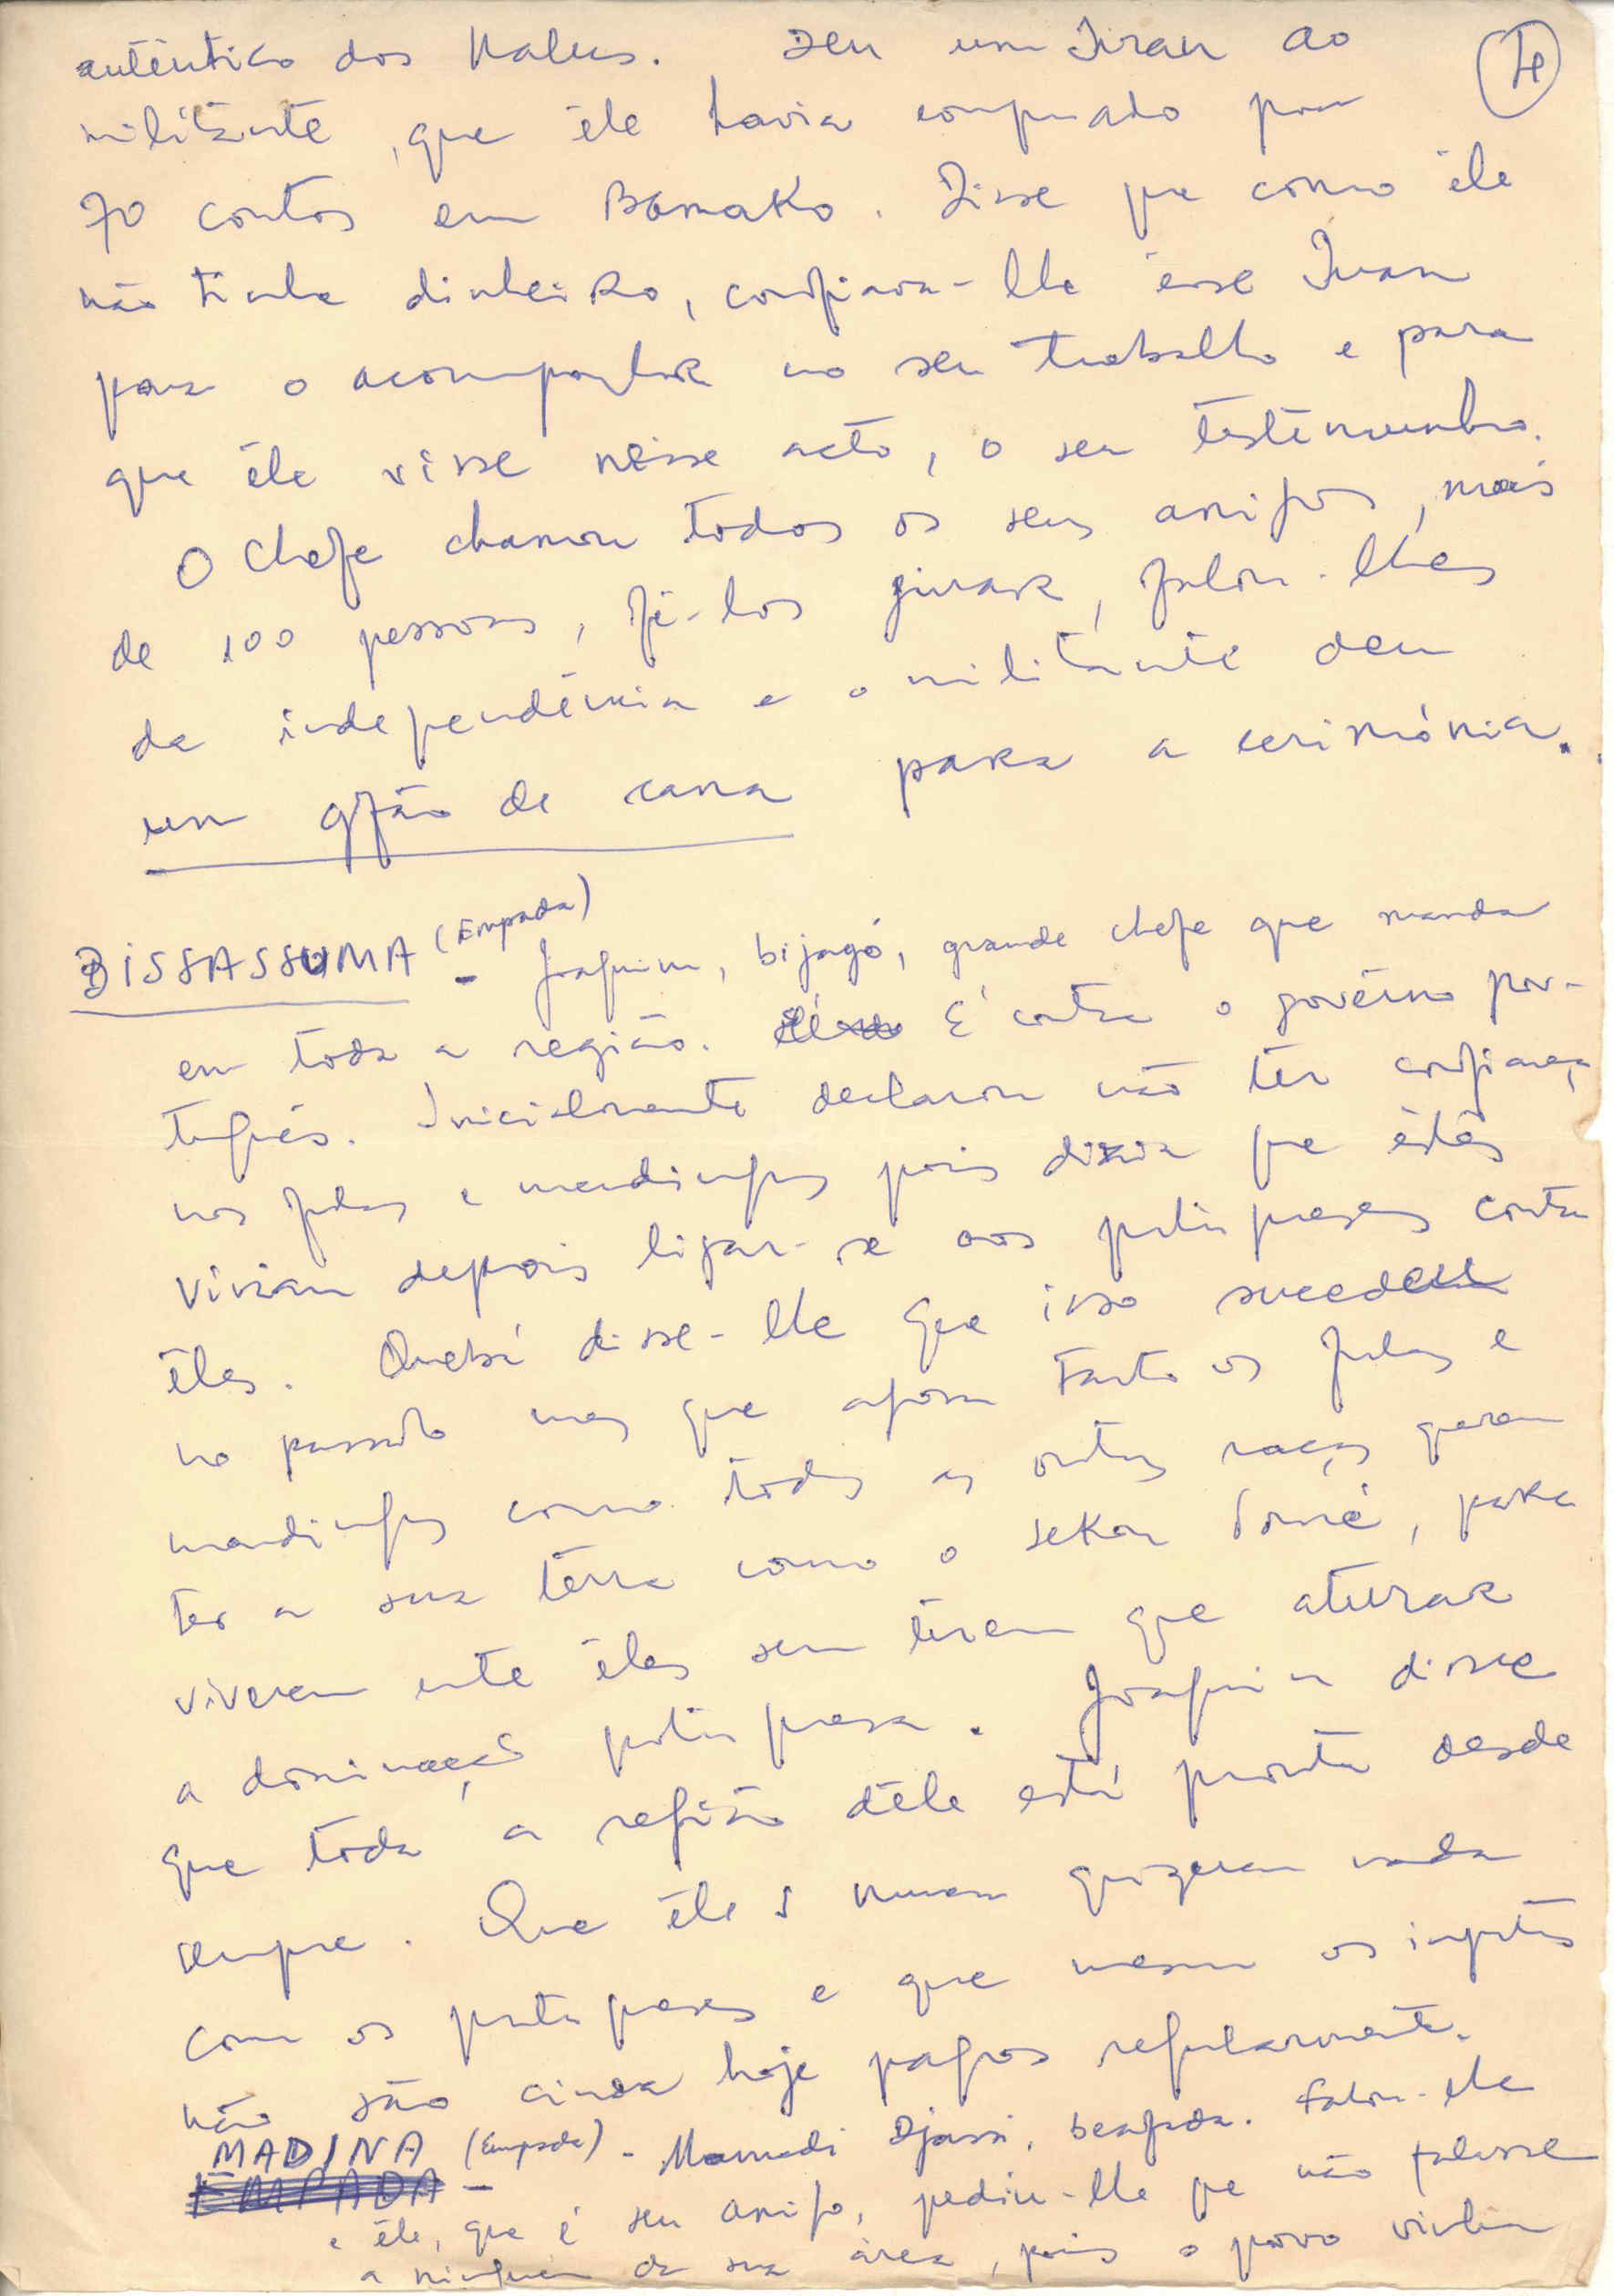 autêntico dos Nalus. Deu um Iran ao
militante, que êle havia comprado por
70 contos em Bamako. Disse que como êle
não tinha dinheiro, confiava-lhe êsse Iran
para o acompanhar no seu trabalho e para
que êle visse nêsse acto, o seu testemunho.
O Chefe chamou todos os seus amigos, mais
de 100 pessoas, fê-los jurar, falou-lhes
da independência e o militante deu
um gfão de cana para a cerimónia.
BISSASSUMA (Empada) - Joaquim, bijagó, grande chefe que manda
em toda a região. É contra o govêrno por-
tuguês. Inicialmente declarou não ter confiança
nos fulas e mandingas pois dizia que êstes
viriam depois ligar-se aos portugueses contra
êles. Quebá disse-lhe que isso sucedeu
no passado mas que agora tanto os fulas e
mandingas como todas as outras raças querem
ter a sua terra como o Sekou Touré, para
viverem entre êles sem terem que aturar
a dominação portuguesa. Joaquim disse
que toda a região dêle está pronta desde
sempre. Que êles nunca quizeram nada
com os portugueses e que mesmo os impostos
não são ainda hoje pagos regularmente.
MADINA (Empada) - Mamadi Djassi, beafada. Falou-lhe
EMPADA -
e êle, que é seu amigo, pediu-lhe que não falasse
a ninguém da sua área, pois o povo vinha